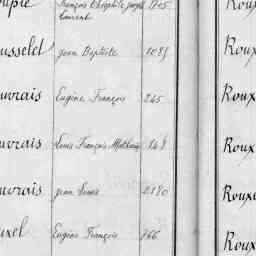 François Théophile Joseph 1705 Roux
Laurent
usselet Jean Baptiste 1085 Roux
uvrais Eugène François 245 Roux
uvrais Louis François Mathurin 148 Roux
uvrais Jean Louis 2180 Rouxe
uxel Eugène François 766 Roux